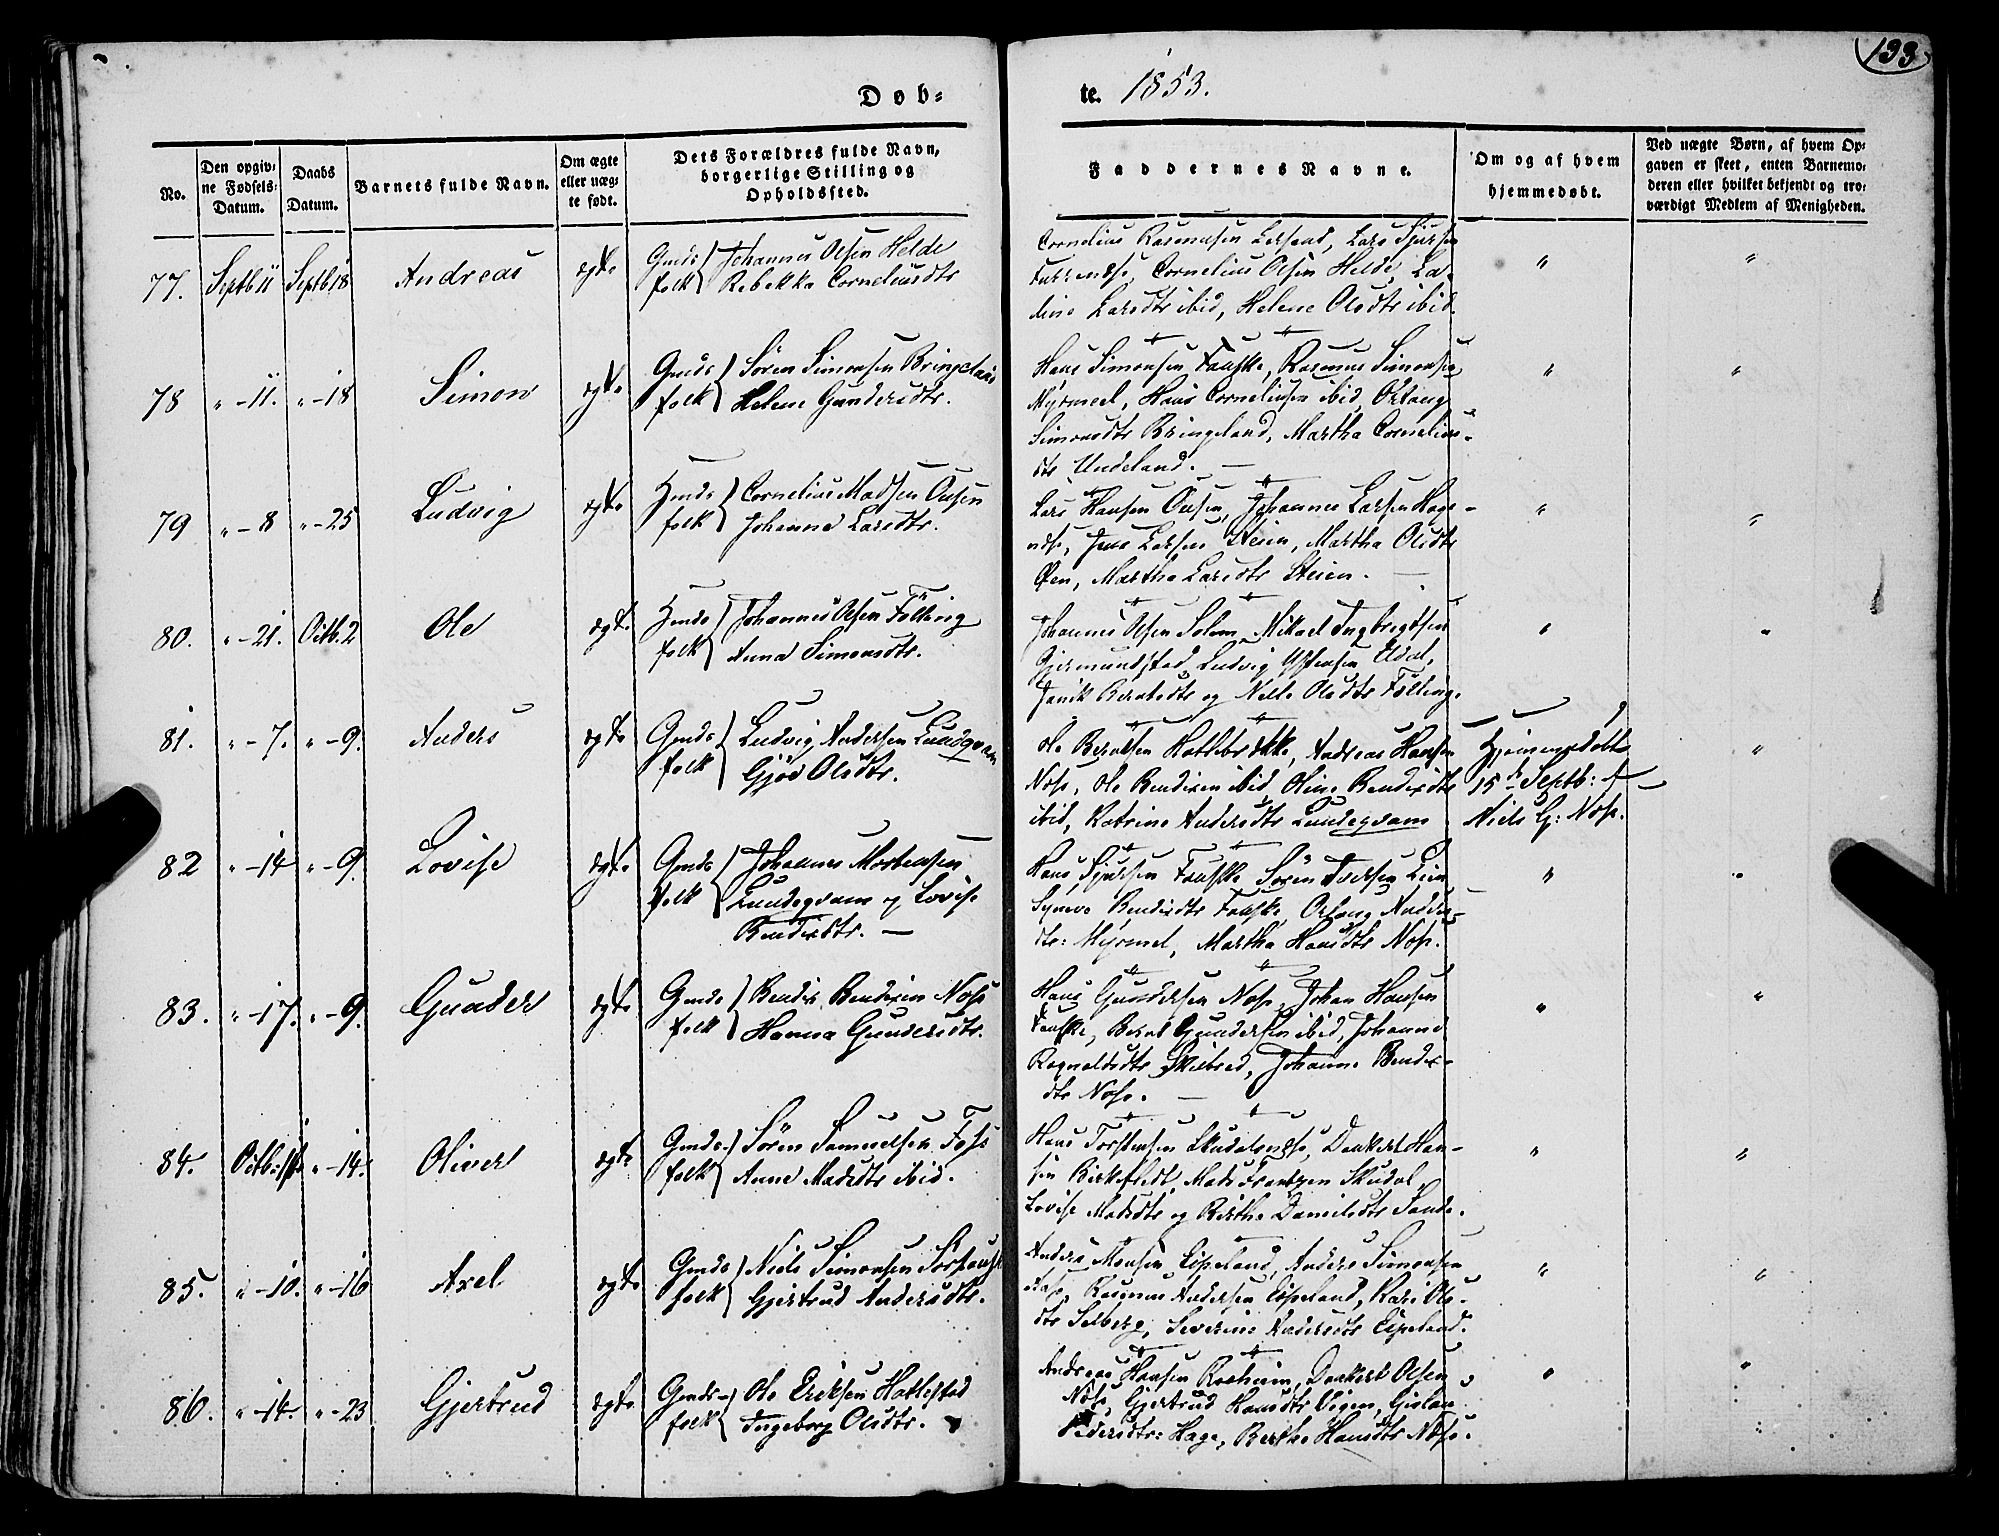 133
Døb-
te. 1853.
No.
Den opgiv-
ne Fødsels-
Datum.
Daabs
Datum.
Barnets fulde Navn.
Om ægte
eller uæg-
te født.
Dets Forældres fulde Navn,
borgerlige Stilling og
Opholdssted.
Faddernes Navne.
Om og af hvem
hjemmedøbt.
Ved uægte Børn, af hvem Op-
gaven er skeet, enten Barnemo-
deren eller hvilket bekjendt og tro-
værdigt Medlem af Menigheden.
77. Septb 11 Septb 18 Andreas ægte
Gmds folk
Johannes Olsen Helde
Rebekka Corneliusdtr
Cornelius Rasmusen Lersund, Lars Sjursen
Cornelius Olsen Helde, La-
Larsdtr ibid, Helene Olsdtr ibid.
78 " -11. " -18 Simon ægte
Gmds folk
Sören Simonsen Bringeland
Helene Gundersdtr.
Hans Simonsen Fauske, Rasmus Simonsen
Myrmel, Hans Corneliusen ibid, Orlaug
Simonsdtr Bringeland, Martha Cornelius-
dtr Undeland. —
79 " -8 " -25 Ludvig ægte
Hmds folk
Cornelius Madsen Ousen
Johanna Larsdtr.
Lars Hansen Ousen, Johannes Larsen Hage-
Jens Larsen Steien, Martha Olsdtr
Øen, Martha Larsdtr Steien. —
80. " -21. Octb. 2 Ole ægte
Hmds folk
Johannes Olsen Fölling
Anna Simonsdtr.
Johannes Olsen Solem, Mikael Ingbrigtsen
Gjermundstad, Ludvig Udal,
Janik Berntsdtr og Nille Olsdtr Fölling.
81. " -7. " -9. Anders ægte
Gmds folk
Ludvig Andersen Lundeqvam
Gjöv Olsdtr.
Ole Berntsen Hatlebrække, Andreas Hansen
Nose, Ole Bendixen ibid, Oline Bendixdtr
ibid, Katrine Andersdtr Lundeqvam
Hjemmedöbt
15de Septb: af
Niels G: Nose.
82 " -14 " -9. Lovise ægte
Gmds folk
Johannes Mortensen
Lundeqvam og Lovise
Bendixdtr. —
Hans Sjursen Fauske, Sören Iversen Lien
Syneve Bendixdtr Fauske, Orlaug Anders-
dtr: Myrmel, Martha Hansdtr Nose.
83. " -17. " -9. Gunder ægte
Gmds folk
Bendix Bendixen Nose
Hanna Gundersdtr.
Hans Gundersen Nose, Johan Hansen
Fauske, Bernt Gundersen ibid, Johanne
Ragnaldsdtr Skilbred, Johanne Bendix-
dtr Nose. —
84. Octb: " -14. Oliver ægte
Gmds folk
Sören Samuelsen Foss
Anne Madsdtr ibid.
Hans Torstensen Skudalsnæse, Dankert Han-
sen Birkefledt, Mads Frantzen Skudal,
Lovise Madsdtr og Birthe Danielsdtr Sande.
85. " -10. " -16 Axel ægte
Gmds folk
Niels Simonsen
Gjertrud Andersdtr.
Anders Monsen Espeland, Anders Simonsen
Rasmus Andersen Espeland, Kari Ols-
dtr Selberg, Severine Andersdtr Espeland.
86. " -14. " -23 Gjertrud ægte
Gmds folk
Ole Eriksen Hatlestad
Ingeborg Olsdtr.
Andreas Hansen Rosheim, Dankert Olsen
Nose, Gjertrud Hansdtr Vigen, Gislau
Pedersdtr: Hage, Berthe Hansdtr Nose.